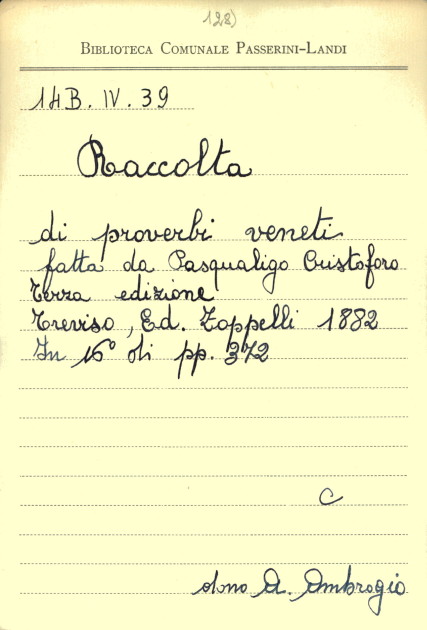 128)
BIBLIOTECA COMUNALE PASSERINI-LANDI
14B. IV. 39
Raccolta
di proverbi veneti
fatta da Pasqualigo Cristoforo
Terza edizione
Treviso, Ed. Zoppelli 1882
In 16° di pp. 372
C
dono A. Ambrogio